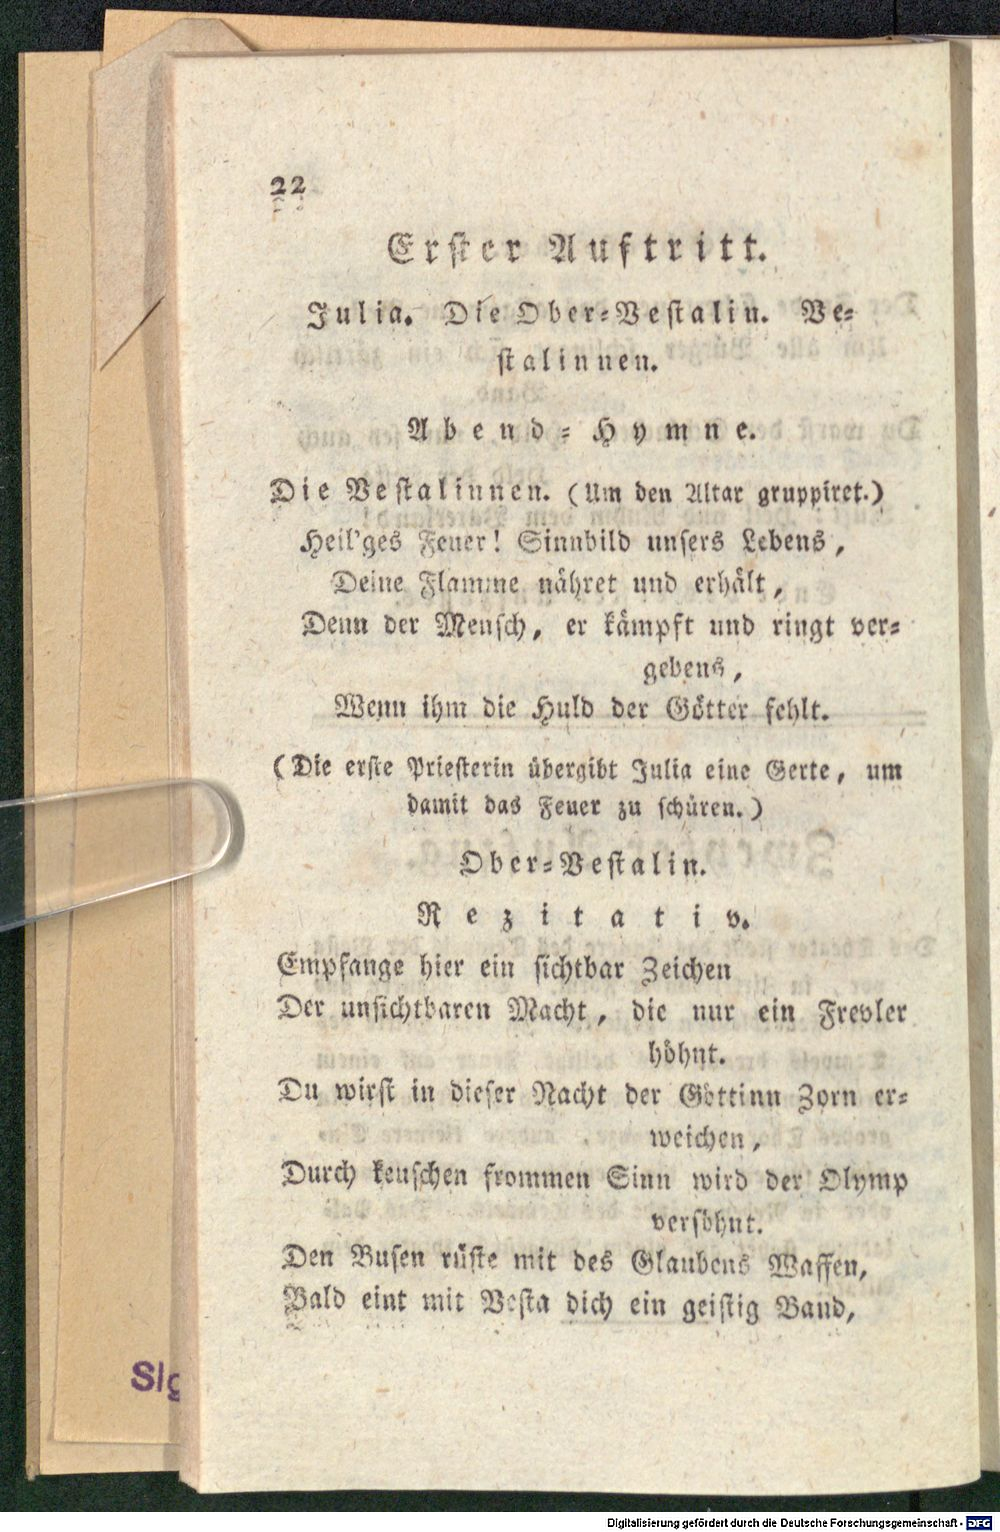 22
Erster Auftritt.
Julia. Die Ober-Vestalin. Ve-
stalinnen.
Abend-Hymne.
Die Vestalinnen. (Um den Altar gruppiret.)
Heil'ges Feuer! Sinnbild unsers Lebens,
Deine Flamme nähret und erhält,
Denn der Mensch, er kämpft und ringt ver-
gebens,
Wenn ihm die Huld der Götter fehlt.
(Die erste Priesterin übergibt Julia eine Gerte, um
damit das Feuer zu schüren.)
Ober-Vestalin.
Rezitativ.
Empfange hier ein sichtbar Zeichen
Der unsichtbaren Macht, die nur ein Frevler
höhnt.
Du wirst in dieser Nacht der Göttinn Zorn er-
weichen,
Durch keuschen frommen Sinn wird der Olymp
versöhnt.
Den Busen rüste mit des Glaubens Waffen,
Bald eint mit Vesta dich ein geistig Band,
Slg
Digitalisierung gefördert durch die Deutsche Forschungsgemeinschaft - DFG